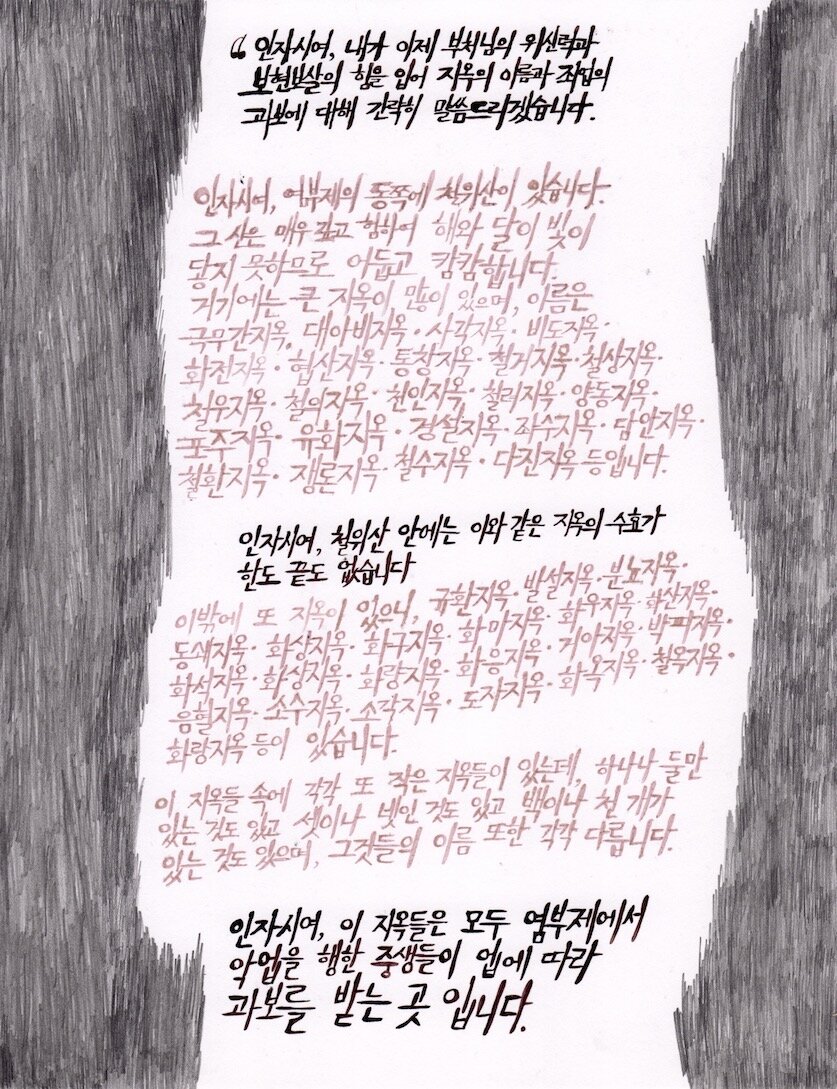 “인자시여, 내가 이제 부처님의 위신력과
보현보살의 힘을 입어 지옥의 이름과 죄업의
과보에 대해 간략히 말씀드리겠습니다.
인자시여, 염부제의 동쪽에 철위산이 있습니다.
그 산은 매우 깊고 험하여 해와 달이 빛이
닿지 못하므로 어둡고 캄캄합니다.
거기에는 큰 지옥이 많이 있으며, 이름은
극무간지옥, 대아비지옥·사각지옥·비도지옥·
화전지옥·협산지옥·통창지옥·철거지옥·철상지옥·
철우지옥·철의지옥·천인지옥·철려지옥·양동지옥·
포주지옥·유화지옥·경설지옥·좌수지옥·담안지옥·
철환지옥·쟁론지옥·철수지옥·다진지옥 등입니다.
인자시여, 철위산 안에는 이와 같은 지옥의 수효가
한도 끝도 없습니다
이밖에 또 지옥이 있으니, 규환지옥·발설지옥·분뇨지옥·
동쇄지옥·화상지옥·화구지옥·화마지옥·화우지옥·화산지옥·
화석지옥·화상지옥·화량지옥·화응지옥·거아지옥·박피지옥·
음혈지옥·소수지옥·소각지옥·도자지옥·화옥지옥·철옥지옥·
화랑지옥 등이 있습니다.
이 지옥들 속에 각각 또 작은 지옥들이 있는데, 하나나 둘만
있는 것도 있고 셋이나 넷인 것도 있고 백이나 천 개가
있는 것도 있으며, 그것들의 이름 또한 각각 다릅니다.
인자시여, 이 지옥들은 모두 염부제에서
악업을 행한 중생들이 업에 따라
과보를 받는 곳 입니다.